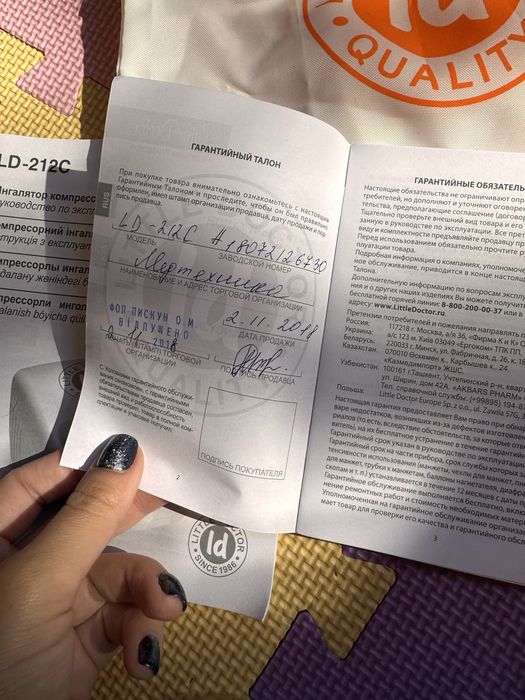 ld
QUALITY
LD-212C
Інгалятор компресс
ГАРАНТИЙНЫЙ ТАЛОН
RUS
При покупке товара внимательно ознакомьтесь с настоящим
Гарантийным Талоном и проследите, чтобы он был правильно
оформлен, имел штамп организации продавца, дату продажи и под-
пись продавца.
LD-212C #18072126730
МОДЕЛЬ ЗАВОДСКОЙ НОМЕР
Медтехника
НАИМЕНОВАНИЕ И АДРЕС ТОРГОВОЙ ОРГАНИЗАЦИИ
ФОП ПИСКУН О.М.
ВІДПУЩЕНО
2.11.2018
ДАТА ПРОДАЖИ
2018
(ШТАМП) ТОРГОВОЙ
ОРГАНИЗАЦИИ
ПОДПИСЬ ПРОДАВЦА
С условиями гарантийного обслужи-
вания ознакомлен, с гарантийными
обязательствами продавца согласен,
внешний вид и работоспособность
товара проверил, товар в полной ком-
плектации и упаковке получил:
ПОДПИСЬ ПОКУПАТЕЛЯ
2
ГАРАНТИЙНЫЕ ОБЯЗАТЕЛЬ
Настоящие обязательства не ограничивают опр
требителей, но дополняют и уточняют оговорен
тельства, предполагающие соглашение (договор
Тщательно проверьте внешний вид товара и его
занную в руководстве по эксплуатации. Все прет
виду и комплектности предъявляйте продавцу пр
Перед использованием обязательно прочтите р
плуатации товара.
Подробная информация о компаниях, уполномоч
ное обслуживание, приводится в конце настоящ
Талона.
Дополнительную информацию по вопросам экспл
ния и о других наших изделиях Вы можете получи
бесплатной горячей линии: 8-800-200-00-37 или в
адресу: www.LittleDoctor.ru.
Претензии потребителей и пожелания направлять
Россия: 117218 г. Москва, а/я 36, «Фирма К и К» О
Украина: а/с 123 м. Київ 03049 «Ергоком» ТПК ПП
Беларусь: 220033 г. Минск, ул. Фабричная, д. 26, к. 18
Казахстан: 070010 Өскемен к., Карбышев к., 24,
«Казмедимпорт» ЖШС.
Узбекистан: 100161 г. Ташкент, Учтепинский р-н, кварт
ул. Ширин, дом 42А. «AKBARS PHARM»
Тел. справочной службы: (+99895) 194-
Польша: Little Doctor Europe Sp. z o.o., ul. Zawila 57G,
Настоящая гарантия предоставляет Вам право обращ
варе недостатков, возникших из-за дефектов изготов
риалов (то есть, вследствие обстоятельств, за которые
витель), на их бесплатное устранение в течение гарантий
Гарантийный срок указан в руководстве по эксплуатаци
Гарантийный срок на части прибора, срок службы которых
тенсивности использования (манжеты, чехлы для манжет, п
для манжет, трубки к манжетам, баллоны нагнетателя, диаф
сколам и т. п.) устанавливается в течение 12 месяцев с даты
Гарантийное обслуживание выполняется бесплатно, включ
нение ремонтных работ и стоимость необходимых матери
Уполномоченная на гарантийное обслуживание организац
мает товар для проверки его качества и гарантийного обсл
3
LITTLE DOCTOR
ld
SINCE 1986